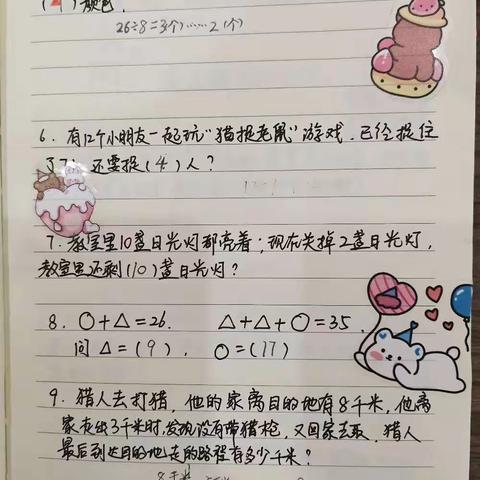 颜色.
26÷8=3(个)……2(个)
6. 有12个小朋友一起玩"猫捉老鼠"游戏, 已经捉住
还要捉(4)人?
7. 教室里10盏日光灯都亮着; 现在关掉2盏日光灯,
教室里还剩(10)盏日光灯?
8. ○+△=26. △+△+○=35.
问△=(9), ○=(17)
9. 猎人去打猎, 他的家离目的地有8千米, 他离
家走出3千米时, 发现没有带猎枪, 又回家去取, 猎人
最后到达目的地走的路程有多少千米?